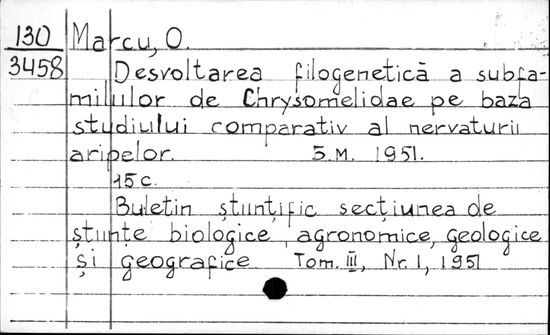 130 Marcu, O.
3458 Desvoltarea filogenetică a subfa-
miliilor de Chrysomelidae pe baza
studiului comparativ al nervaturii
aripelor. 5.M. 1951.
15 c.
Buletin științific secțiunea de
științe biologice, agronomice, geologice
și geografice Tom. III, Nr. 1, 1951